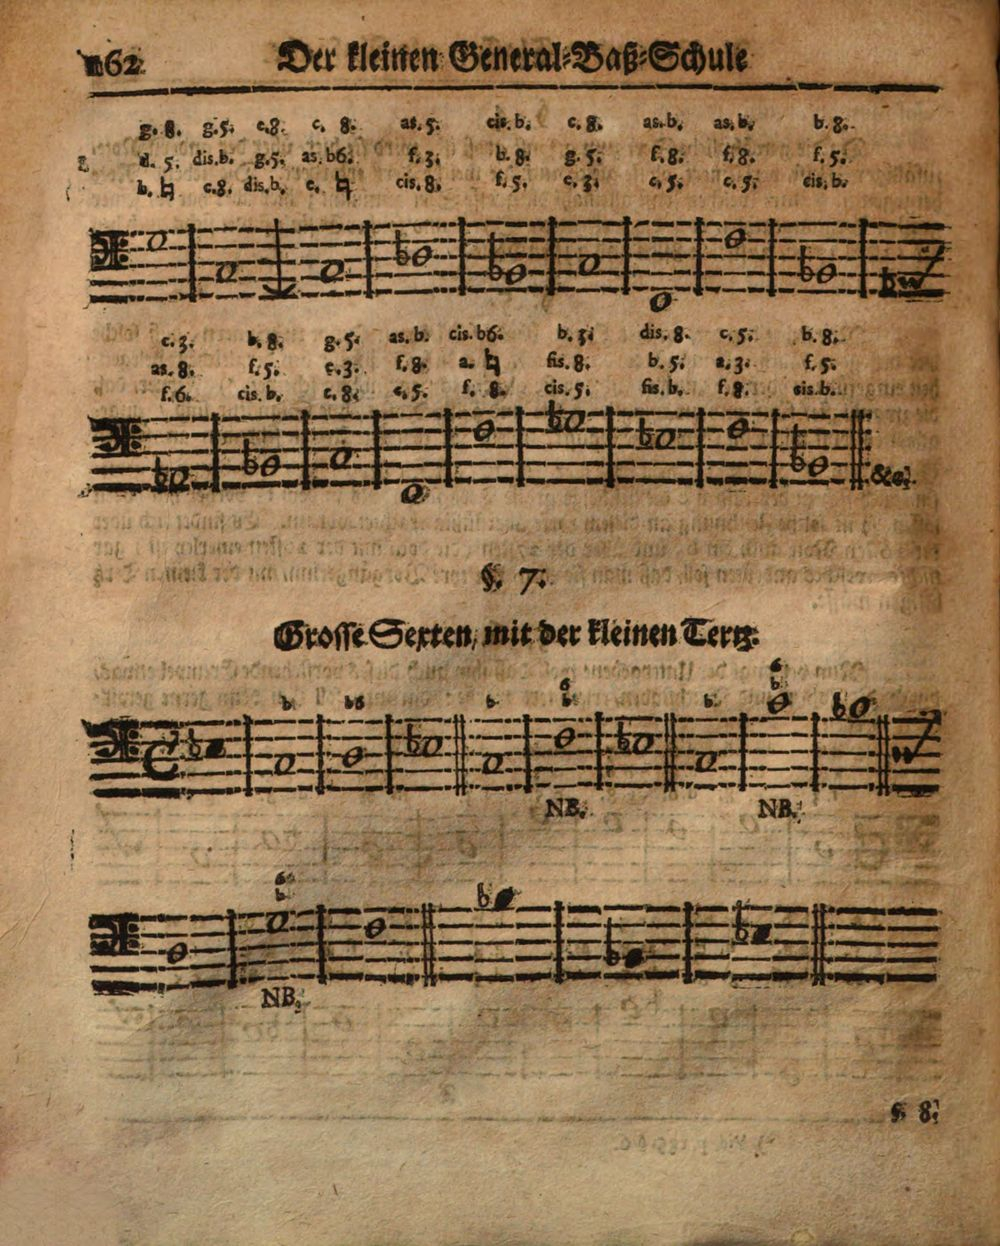 162 Der kleinen General-Baß-Schule
g. 8. g. 5. e. 8. c. 8. as. 5. cis. b. c. 8. as. b. as. b. b. 8.
d. 5. dis. b. g. 5. as. b6. f. 3. b. 8. g. 5. f. 8. f. 8. f. 5.
b. ♮ c. 8. dis. b. c. ♮ cis. 8. f. 5. e. 3. c. 5. c. 5. cis. b.
c. 3. b. 8. g. 5. as. b. cis. b6. b. 3. dis. 8. c. 5. b. 8.
as. 8. f. 5. e. 3. f. 8. a. ♮ fis. 8. b. 5. a. 3. f. 5.
f. 6. cis. b. c. 8. c. 5. f. 8. cis. 5. fis. b. f. 8. cis. b.
&c.
§. 7.
Grosse Sexten, mit der kleinen Tertz.
6 6
b b6 b b b b
NB. NB.
6
b
NB.
§. 8.